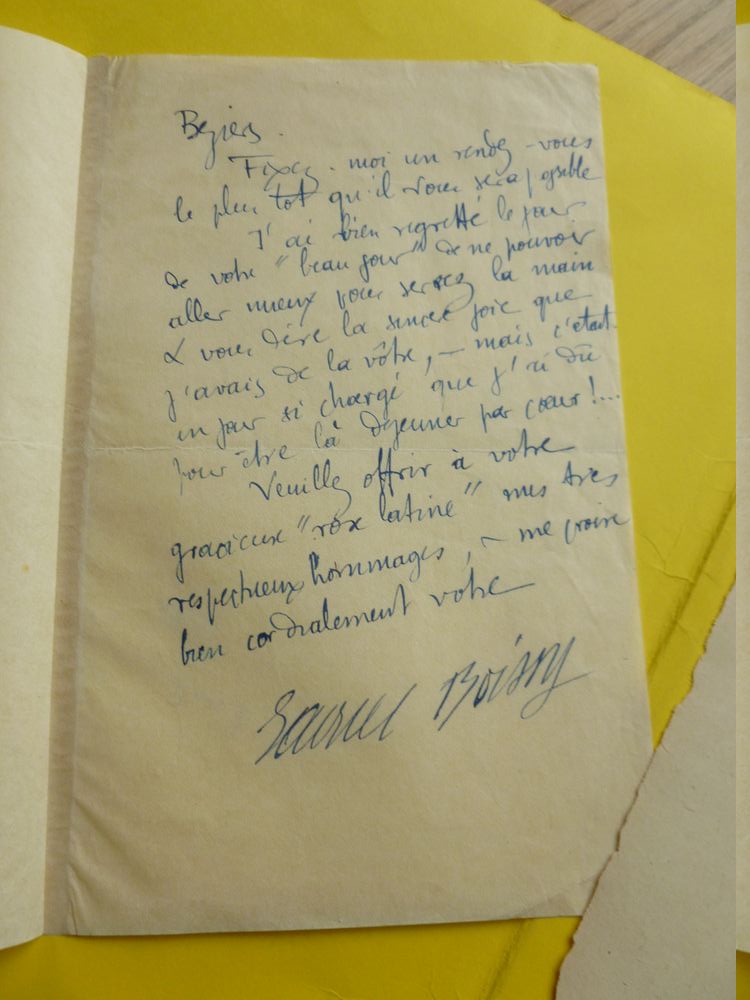 Beziers.
Fixez-moi un rendez-vous
le plus tôt qu'il vous sera possible
J'ai bien regretté le jour
de votre "beau jour" de ne pouvoir
aller mieux vous serrer la main
& vous dire la sincère joie que
j'avais de la vôtre, – mais c'était
un jour si chargé que j'ai dû
pour être là déjeuner par cœur!...
Veuillez offrir à votre
gracieuse "rose latine" mes très
respectueux hommages, – me croire
bien cordialement votre
Boissy